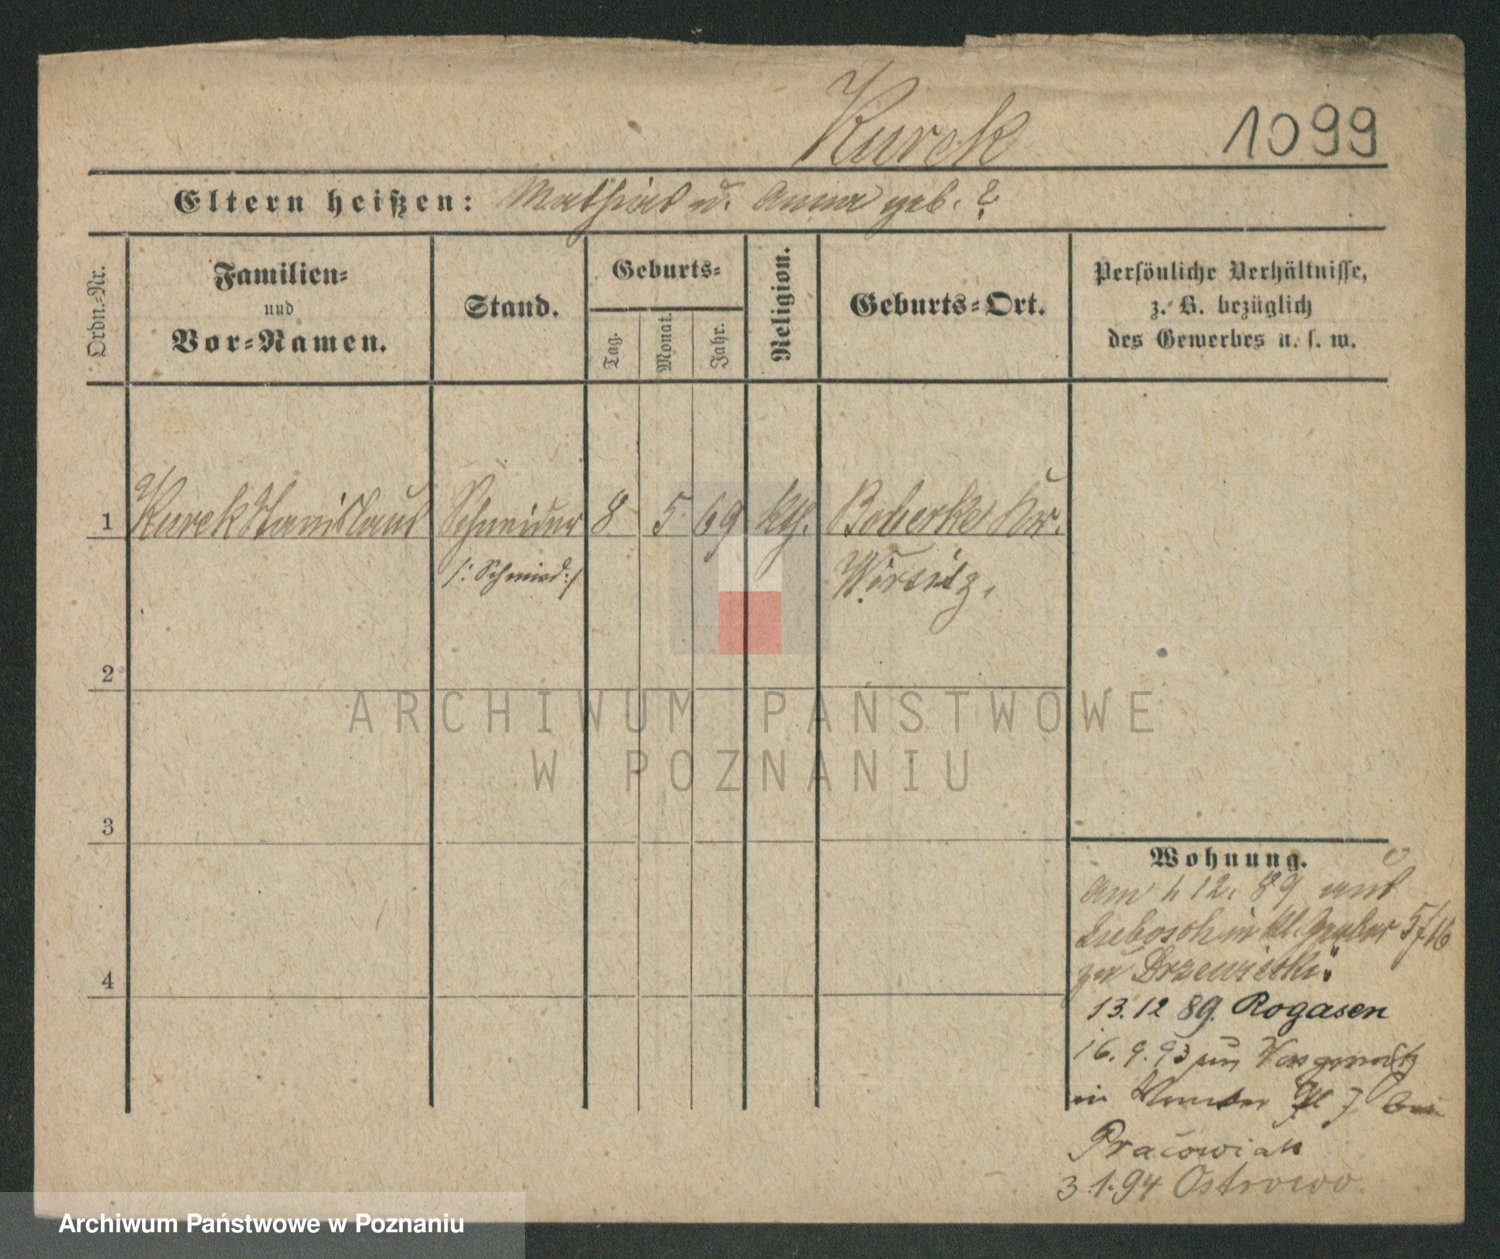 Kurek 1099
Eltern heißen: Mathias u. Anna geb. ?
Ordn.-Nr.
Familien-
und
Vor-Namen.
Stand.
Geburts-
Tag.
Monat.
Jahr.
Religion.
Geburts-Ort.
Persönliche Verhältnisse,
z. B. bezüglich
des Gewerbes u. s. w.
1 Kurek Stanislaus Schneider 8 5 69 kth. Boberke Kr.
/: Schmied :/ Wirsitz,
2
3
4
ARCHIWUM PAŃSTWOWE
W POZNANIU
Wohnung.
am 1. 12. 89 aus
in kl. 5/
zu Drzewiecki.
13. 12 89. Rogasen
16. 9. 93
in bei
Pracowiak
3.1.94 Ostrowo
Archiwum Państwowe w Poznaniu